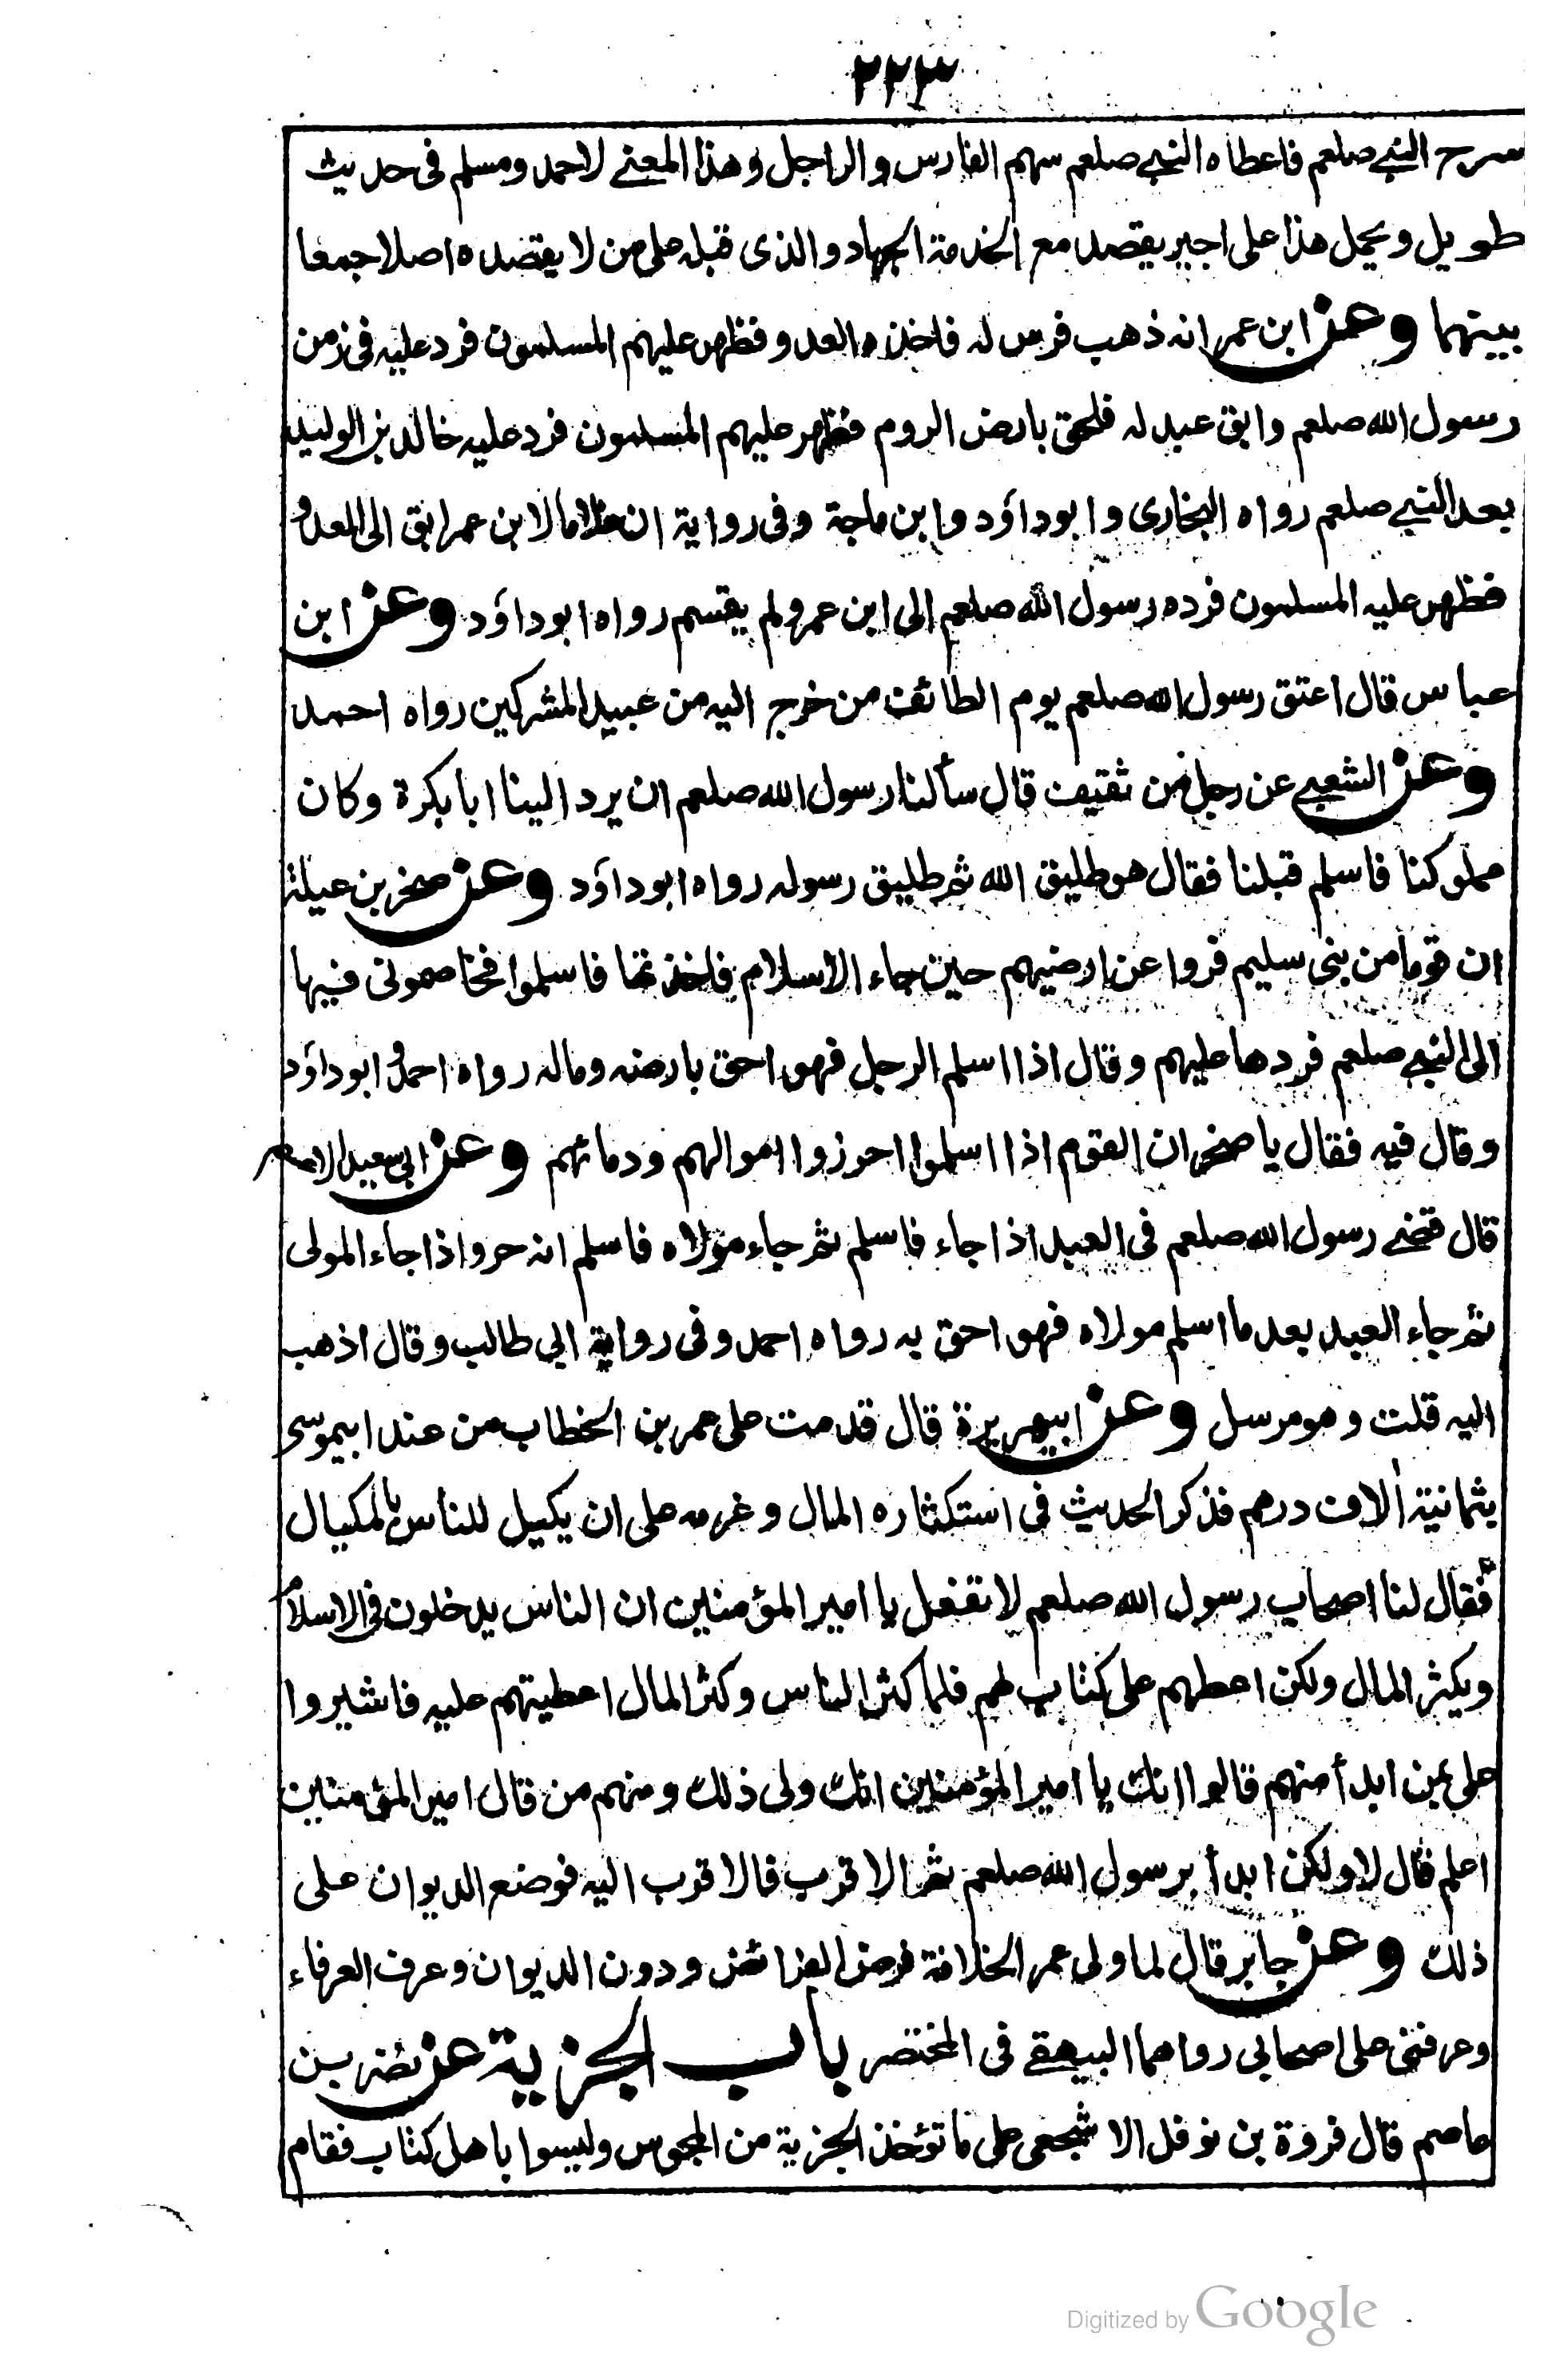 ٢٢٣
سرح النبي صلعم فاعطاه النبي صلعم سهم الفارس والراجل وهذا المعنى لاحمد ومسلم فى حديث
طويل ويحمل هذا على اجير يقصد مع الخدمة الجهاد والذى قبله على من لا يقصده اصلا جمعا
بينهما وعن ابن عمر انه ذهب فرس له فاخذه العدو فظهر عليهم المسلمون فرد عليه فى زمن
رسول الله صلعم وابق عبد له فلحق بارض الروم فظهر عليهم المسلمون فرد عليه خالد بن الوليد
بعد النبي صلعم رواه البخارى وابوداؤد وابن ماجة وفى رواية ان غلاما لابن عمر ابق الى العدو
فظهر عليه المسلمون فرده رسول الله صلعم الى ابن عمر ولم يقسم رواه ابوداؤد وعن ابن
عباس قال اعتق رسول الله صلعم يوم الطائف من خرج اليه من عبيد المشركين رواه احمد
وعن الشعبي عن رجل من ثقيف قال سألنا رسول الله صلعم ان يرد الينا ابا بكرة وكان
مملوكنا فاسلم قبلنا فقال هو طليق الله ثم طليق رسوله رواه ابوداؤد وعن صخر بن عيلة
ان قوما من بنى سليم فروا عن ارضيهم حين جاء الاسلام فاخذتها فاسلموا فخاصمونى فيها
الى النبي صلعم فردها عليهم وقال اذا اسلم الرجل فهو احق بارضه وماله رواه احمد وابوداؤد
وقال فيه فقال يا صخر ان القوم اذا اسلموا احرزوا اموالهم ودمائهم وعن ابى سعيد الاعسم
قال قضى رسول الله صلعم فى العبد اذا جاء فاسلم ثم جاء مولاه فاسلم انه حر واذا جاء المولى
ثم جاء العبد بعد ما اسلم مولاه فهو احق به رواه احمد وفى رواية ابي طالب وقال اذهب
اليه قلت وهو مرسل وعن ابيهريرة قال قدمت على عمر بن الخطاب من عند ابيموسى
بثمانية ألاف درهم فذكر الحديث فى استكثاره المال وغرمه على ان يكيل للناس بالمكيال
فقال لنا اصحاب رسول الله صلعم لا تفعل يا امير المؤمنين ان الناس يدخلون فى الاسلام
ويكثر المال ولكن اعطهم على كتاب لهم فلما كثر الناس وكثر المال اعطيتهم عليه فاشيروا
على بمن ابدأ منهم قالوا انك يا امير المؤمنين انك ولى ذلك ومنهم من قال امير المؤمنين
اعلم قال لا ولكن ابدأ برسول الله صلعم ثم الاقرب فالاقرب اليه فوضع الديوان على
ذلك وعن جابر قال لما ولى عمر الخلافة فرض الفرائض ودون الديوان وعرف العرفاء
وعرفنى على اصحابى رواهما البيهقى فى المختصر باب الجزية عن نضر بن
عاصم قال فروة بن نوفل الاشجعى على ما تؤخذ الجزية من المجوس وليسوا باهل كتاب فقام
Digitized by Google